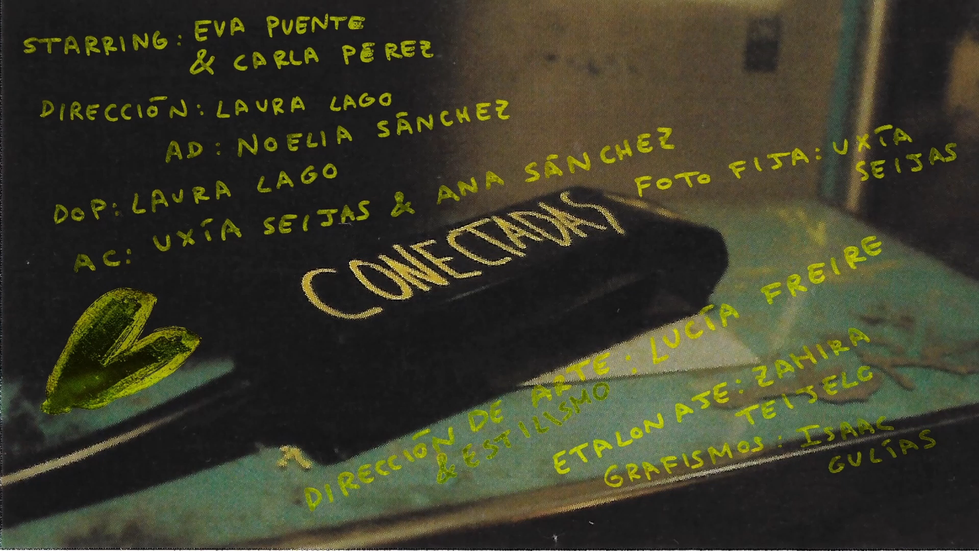 STARRING: EVA PUENTE
& CARLA PÉREZ
DIRECCIÓN: LAURA LAGO
AD: NOELIA SÁNCHEZ
DOP: LAURA LAGO
AC: UXÍA SEIJAS & ANA SÁNCHEZ
FOTO FIJA: UXÍA
SEIJAS
CONECTADAS
DIRECCIÓN DE ARTE: LUCÍA FREIRE
& ESTILISMO
ETALONAJE: ZAHIRA
TEIJELO
GRAFISMOS: ISAAC
GULÍAS